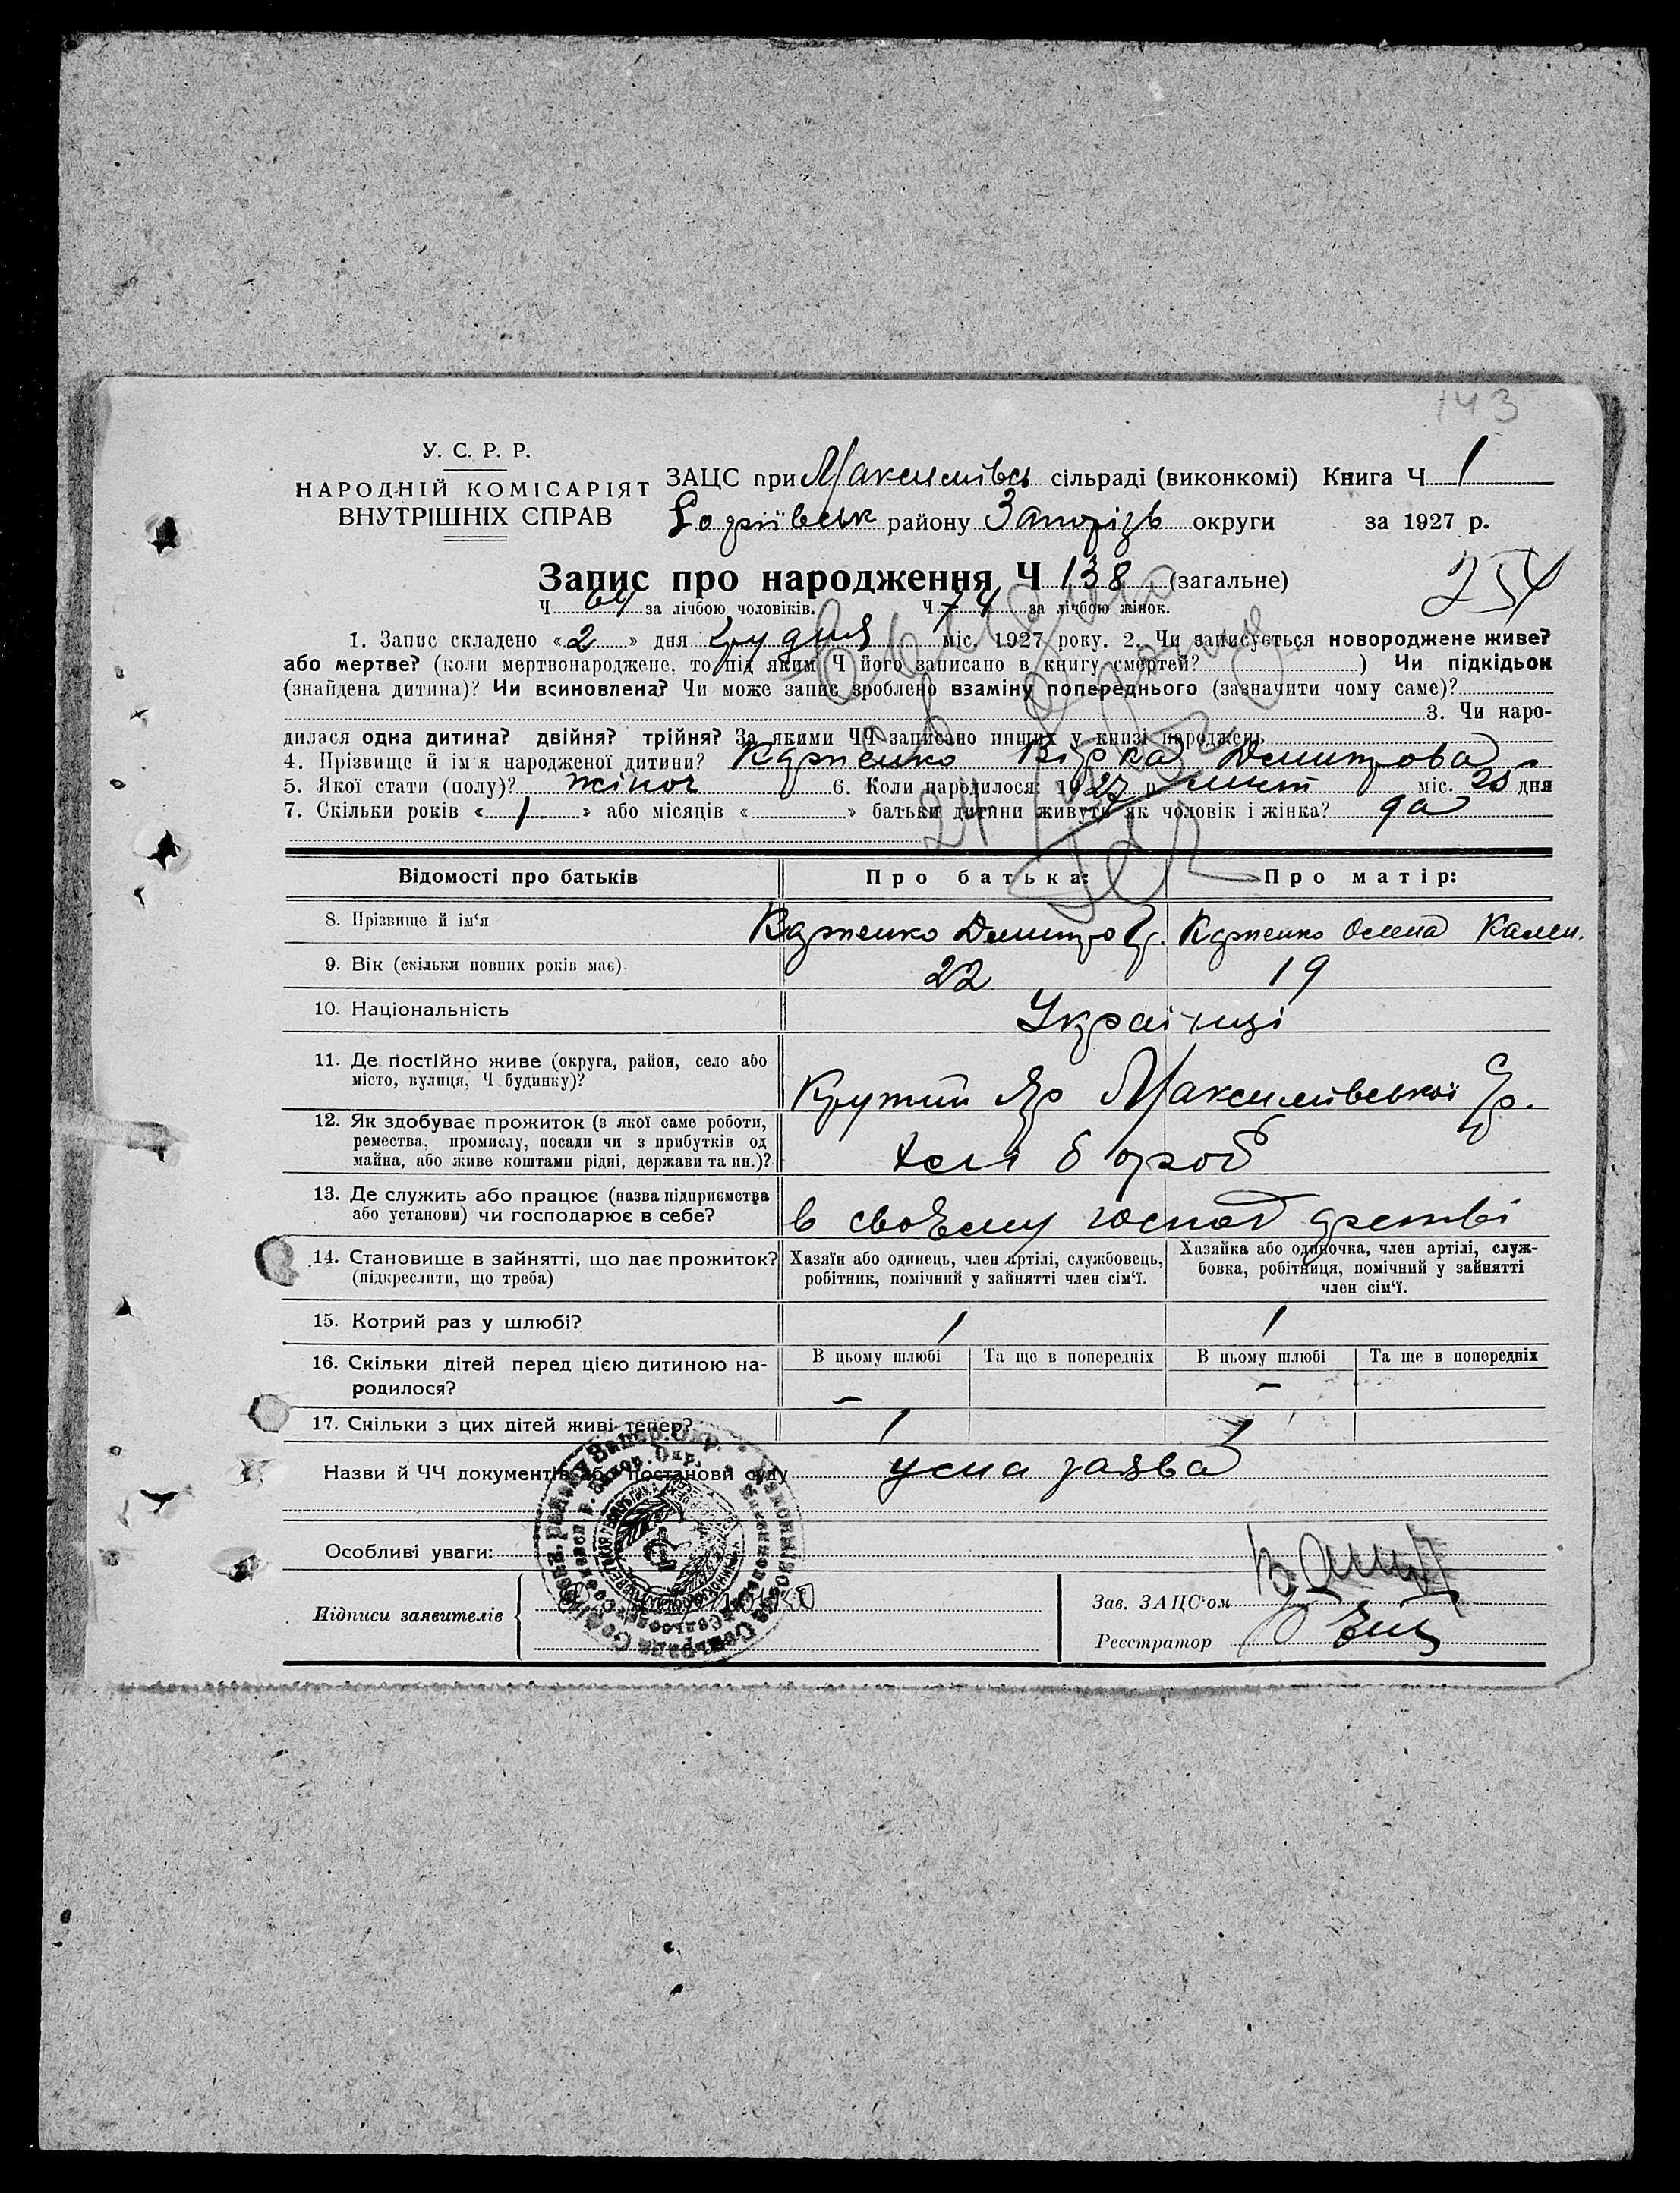 143
У. С. Р. Р.
НАРОДНІЙ КОМІСАРІЯТ
ВНУТРІШНІХ СПРАВ
ЗАЦС при Максимівсь сільраді (виконкомі) Книга Ч 1
Софіївськ району Запоріз округи за 1927 р.
Запис про народження Ч 138 (загальне)
254
Ч 64 за лічбою чоловіків. Ч 74 за лічбою жінок.
1. Запис складено «2» дня Грудня міс. 1927 року. 2. Чи записується новороджене живе?
або мертве? (коли мертвонароджене, то під яким Ч його записано в книгу смертей? ) Чи підкідьок
(знайдена дитина)? Чи всиновлена? Чи може запис зроблено взаміну попереднього (зазначити чому саме)?
3. Чи наро-
дилася одна дитина? двійня? трійня? За якими ЧЧ записано инших у книзі народжень
4. Прізвище й ім'я народженої дитини? Карпенко Вірка Дмитрова
5. Якої стати (полу)? жіноч 6. Коли народилося: 1927 р. лист міс. 25 дня
7. Скільки років «1» або місяців « » батьки дитини живуть як чоловік і жінка? да
24
Відомості про батьків
Про батька:
Про матір:
8. Прізвище й ім'я Карпенко Дмитро Карпенко Олена
9. Вік (скільки повних років має) 22 19
10. Національність Українці
11. Де постійно живе (округа, район, село або
місто, вулиця, Ч будинку)?
Крутий Яр Максимівської
12. Як здобуває прожиток (з якої саме роботи,
ремества, промислу, посади чи з прибутків од
майна, або живе коштами рідні, держави та ин.)?
хлібороб
13. Де служить або працює (назва підприємства
або установи) чи господарює в себе?
в своєму господарстві
14. Становище в зайнятті, що дає прожиток?
(підкреслити, що треба)
Хазяїн або одинець, член артілі, службовець,
робітник, помічний у зайнятті член сім'ї.
Хазяйка або одиночка, член артілі, служ-
бовка, робітниця, помічний у зайнятті
член сім'ї.
15. Котрий раз у шлюбі? 1 1
16. Скільки дітей перед цією дитиною на-
родилося?
В цьому шлюбі Та ще в попередніх В цьому шлюбі Та ще в попередніх
– –
17. Скільки з цих дітей живі тепер? 1 1
Назви й ЧЧ документів або постанови суду усна заява
Особливі уваги:
Підписи заявителів
Зав. ЗАЦС'ом
Реєстратор